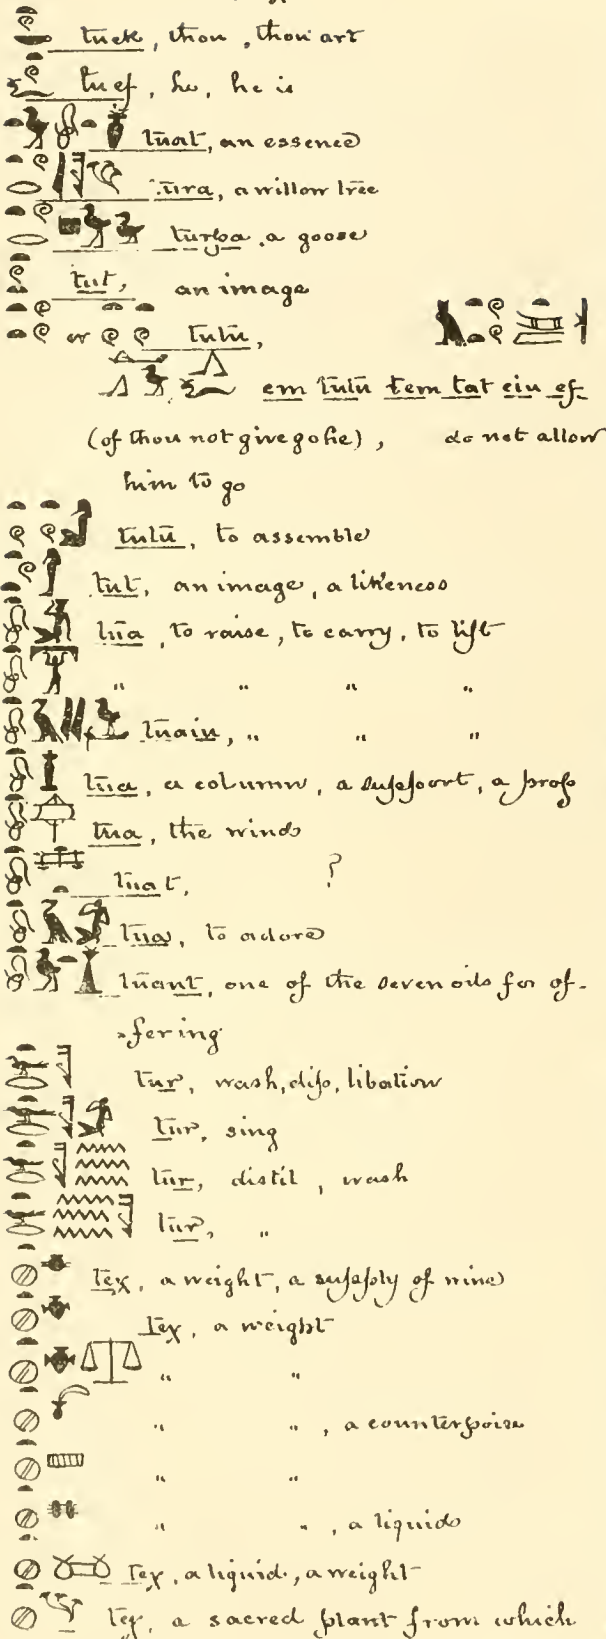 tuek, thou, thou art
tuef, he, he is
tuat, an essence
tura, a willow tree
turpa, a goose
tut, an image
or tutu,
em tutu tem tat eiu ef
(of thou not give go he), do not allow
him to go
tutu, to assemble
tut, an image, a likeness
tua, to raise, to carry, to lift
" " " "
tuaiu, " " "
tua, a column, a support, a prop
tua, the winds
tuat, ?
tua, to adore
tuant, one of the seven oils for of-
fering
tur, wash, dip, libation
tur, sing
tur, distil, wash
tur, "
tex, a weight, a supply of wine
tex, a weight
" "
" ", a counterpoise
" "
" ", a liquid
tex, a liquid, a weight
tex, a sacred plant from which